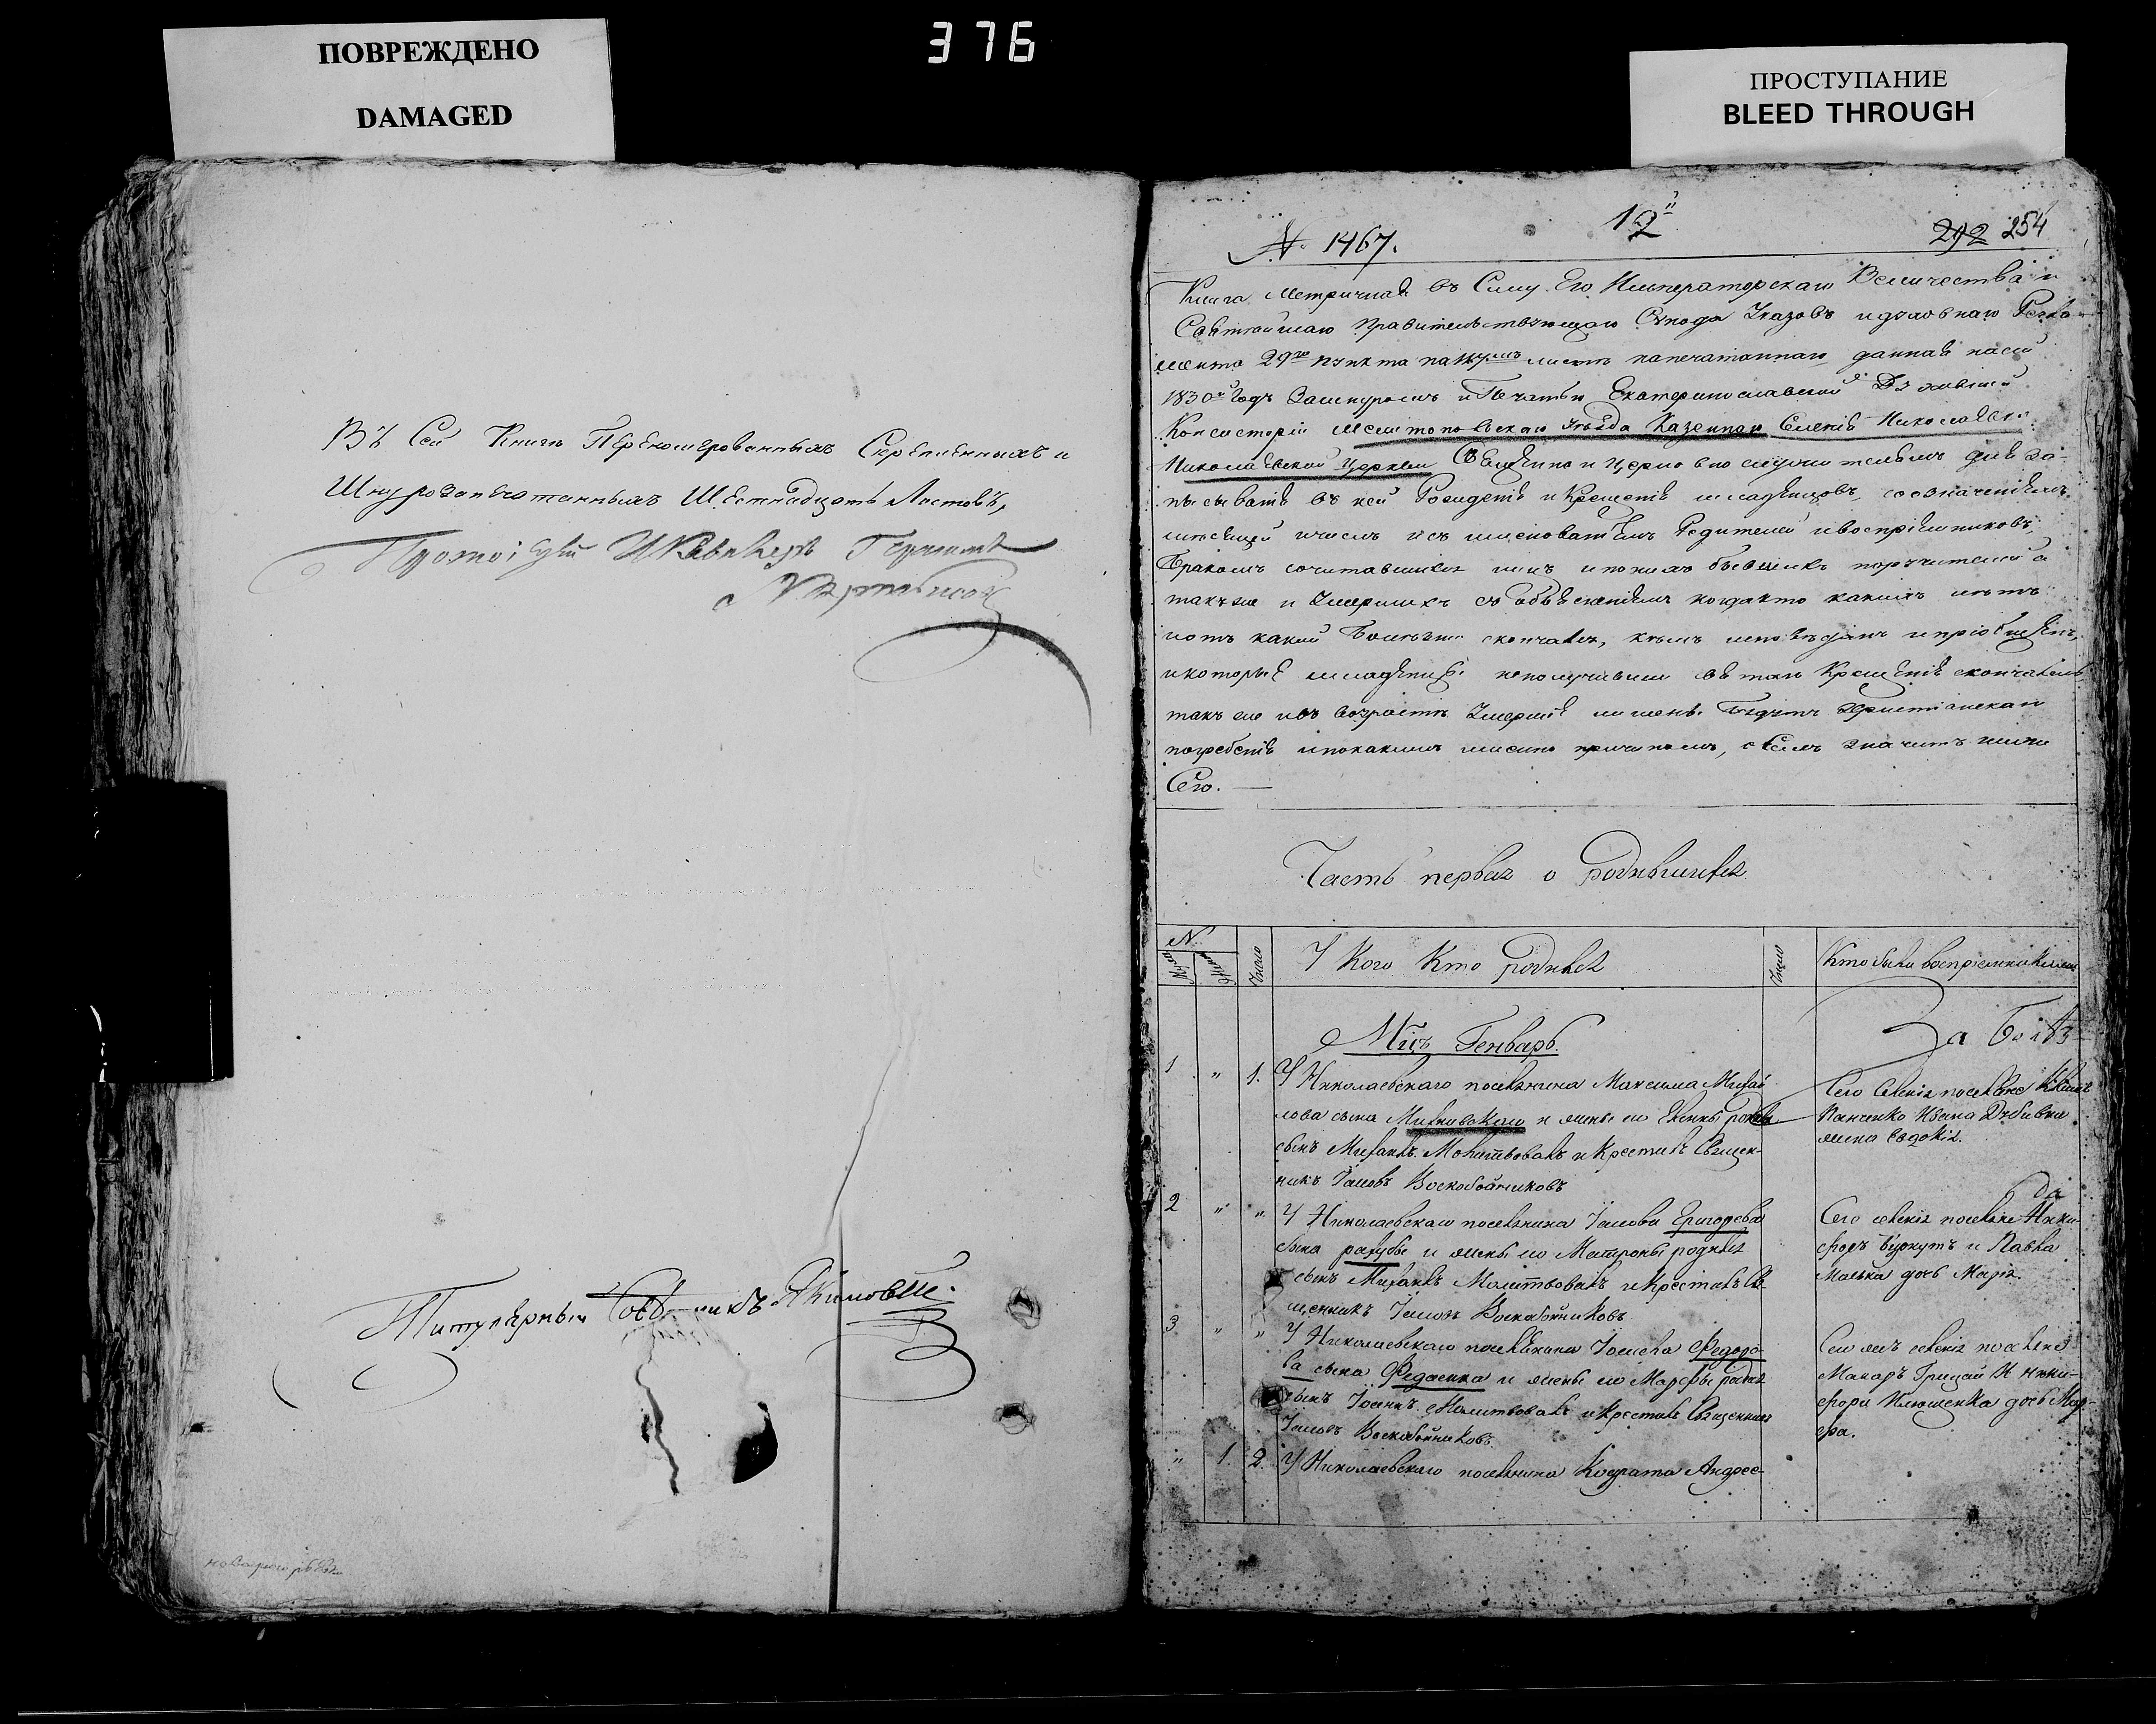 ПОВРЕЖДЕНО
DAMAGED
376
ПРОСТУПАНИЕ
BLEED THROUGH
Въ Сей Книгѣ Переномерованныхъ Скрепленныхъ и
Шнурозапечатанныхъ Шестнадцать Листовъ,
Протоіерей И Кавалеръ
Титулярный Совѣтникъ Якимовъ
№ 1467.
12
292 254
Книга Метричная въ Силу Его Императорскаго Величества и
Святѣйшаго Правительствующаго Сѵнода Указовъ и духовнаго Регла-
мента 29го пункта листѣ напечатаннаго данная на сей
1830й Годъ За шнуромъ и Печатью Екатеринославской Духовной
Консисторіи Мелитопольскаго уѣзда Казеннаго Селенія Николаевки
Николаевской Церкви Священно и Церковно служителямъ для за-
писыванія въ ней Рожденія и Крещенія младенцовъ, со означеніемъ
мѣсяцей и чиселъ и съ именованіемъ Родителей и воспріемниковъ,
Бракомъ сочитавшихся лицъ и по нихъ бывшихъ поручителей а
такъ же и Умершихъ съ объясненіемъ когда кто какихъ лѣтъ
и отъ какой Болѣзни скончался, кѣмъ исповѣданъ и пріобщенъ,
и которые младенцы неполучивши святаго Крещенія скончались
такъ же и въ возрастѣ Умершіе лишены Будутъ Христіанскаго
погребенія и по какимъ имянно причинамъ, о всемъ значитъ ниже
Сего.
Часть первая о родившихся
№
Число
У Кого Кто родился
Число
Кто были воспріемниками
Мцъ Генварь
1 " 1. У Николаевскаго поселянина Максима Михай
лова сына Милковскаго и жены его Елены родился
сынъ Михаилъ. Молитвовалъ и Крестилъ Священ-
никъ Іаковъ Воскобойниковъ
Сего селенія поселяне
Панченко Ивана
жена Евдокія.
2 " " У Николаевскаго поселянина Іакова Григорьева
сына и жены его Матроны родился
сынъ Михаилъ Молитвовалъ и Крестилъ Св-
щенникъ Іаковъ Воскобойниковъ
Сего селенія поселяне Ники-
форъ Буркутъ и Павла
дочь Марія.
3 " " У Николаевскаго поселянина Іакова Федоро-
ва сына Федоенка и жены его Марфы родился
сынъ Іоаннъ. Молитвовалъ и Крестилъ Священникъ
Іаковъ Воскобойниковъ
Сего жъ селенія поселяне
Макаръ Грицай и Ники-
фора Клюшенка дочь Мар-
фа.
" 1 2. У Николаевскаго поселянина Кодрата Андрее-